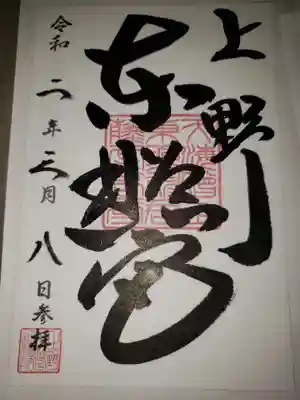 上野
東照宮
令和二年三月八日参拝